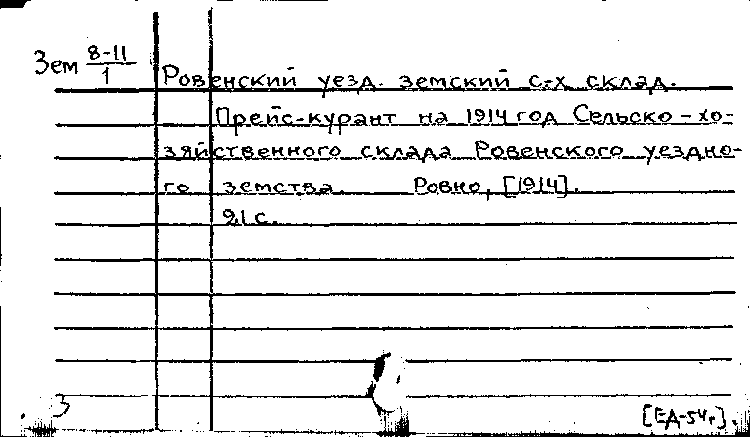 Зем 8-11/1
Ровенский уезд. земский с-х склад.
Прейс-курант на 1914 год Сельско-хо-
зяйственного склада Ровенского уездно-
го земства. Ровно, [1914].
21 с.
3
[ЕД-54г]